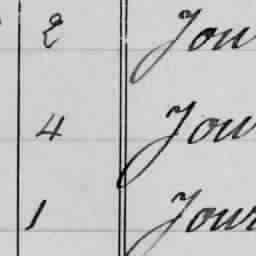 2 Jou
4 Jou
1 Jour